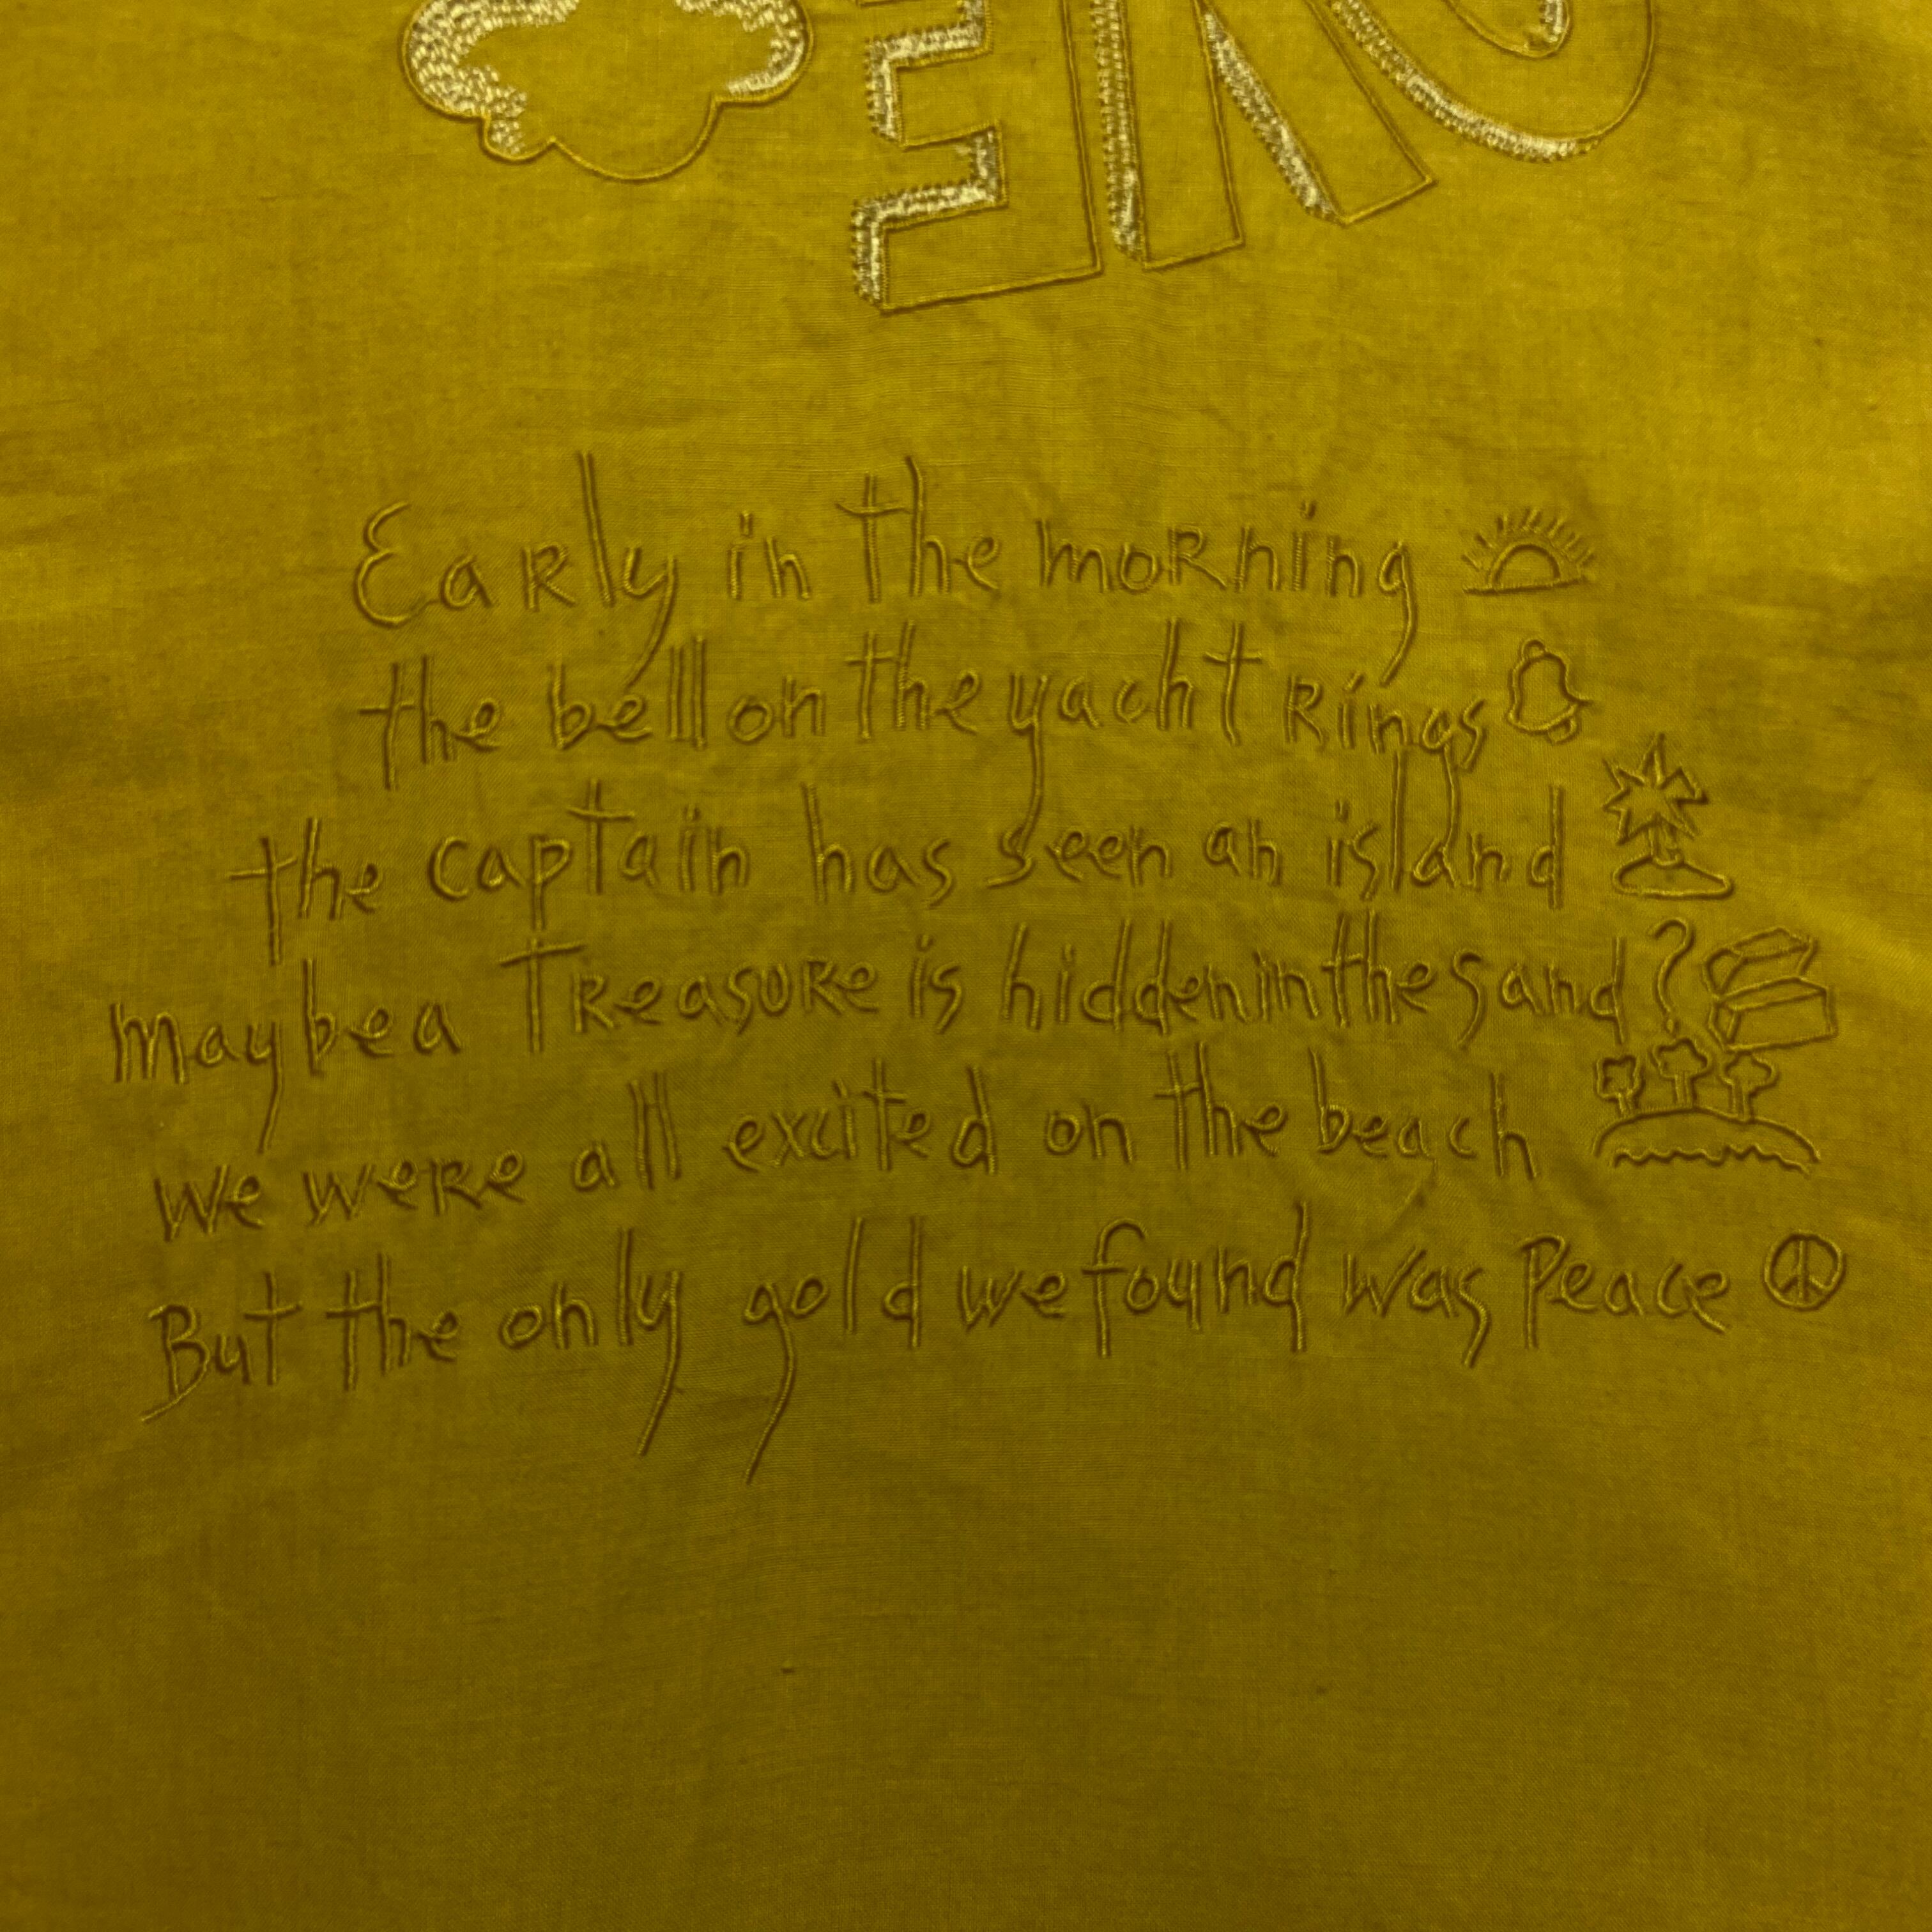 Early in the morning
the bell on the yacht rings
the captain has seen an island
maybe a treasure is hidden in the sand?
we were all excited on the beach
But the only gold we found was Peace